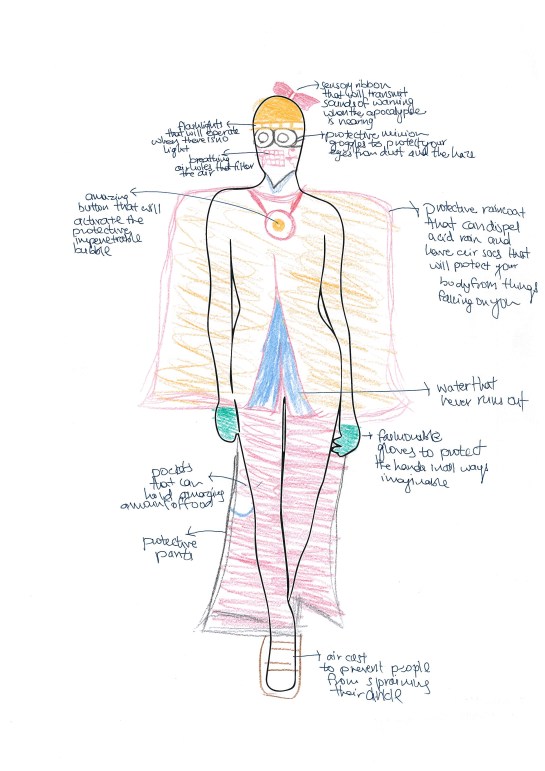 sensory ribbon
that will transmit
sounds of warning
when the apocalypse
is nearing
flashlights
that will operate
when there is no
light
protective minion
goggles to protect your
eyes from dust and the haze
breathing
air holes that filter
the air
amazing
button that will
activate the
protective
impenetrable
bubble
Protective raincoat
that can dispel
acid rain and
have air sacs that
will protect your
body from things
falling on you
water that
never runs out
fashionable
gloves to protect
the hands in all ways
imaginable
pockets
that can
hold amazing
amount of food
protective
pants
air cast
to prevent people
from spraining
their ankle